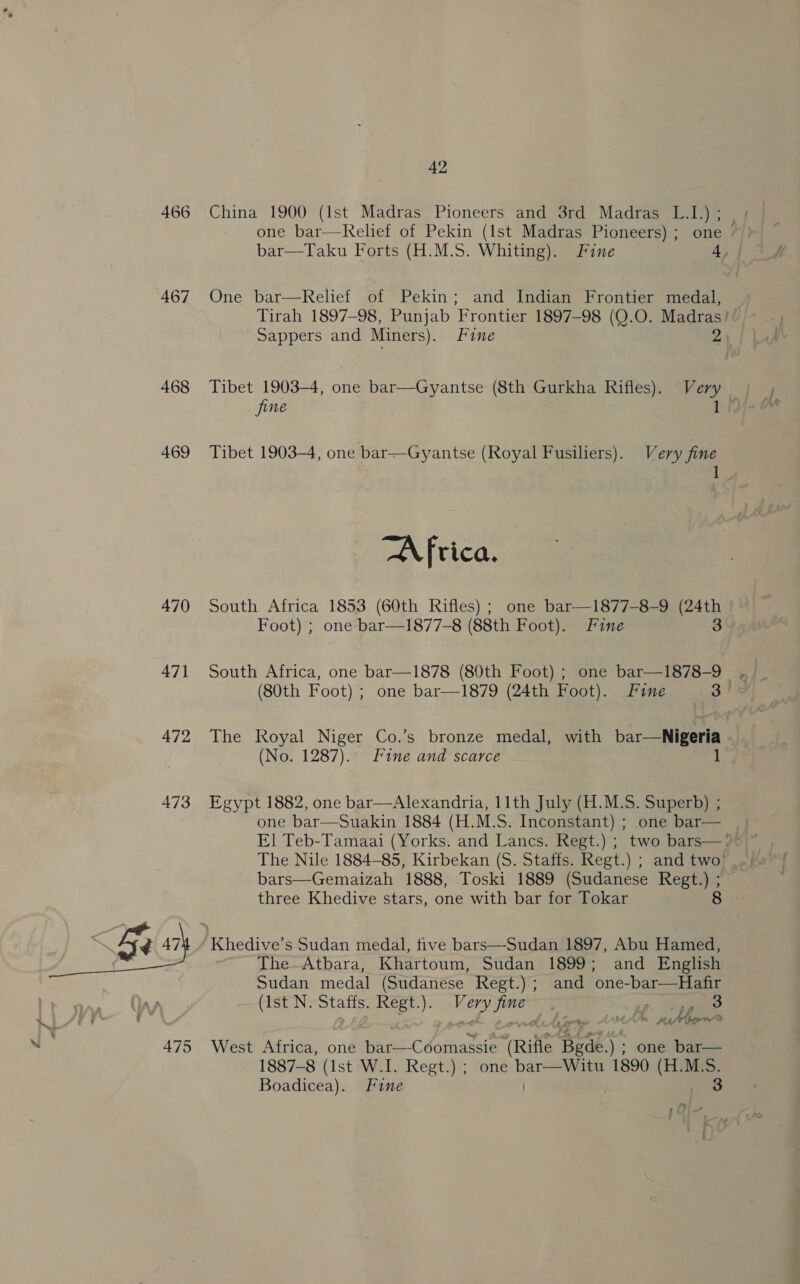 42
466 China 1900 (1st Madras Pioneers and 3rd Madras L.I.);
one bar—Relief of Pekin (1st Madras Pioneers); one
bar—Taku Forts (H.M.S. Whiting). Fine 4
467 One bar—Relief of Pekin; and Indian Frontier medal,
Tirah 1897-98, Punjab Frontier 1897-98 (Q.O. Madras
Sappers and Miners). Fine 2
468 Tibet 1903-4, one bar—Gyantse (8th Gurkha Rifles). Very
fine 1
469 Tibet 1903-4, one bar—Gyantse (Royal Fusiliers). Very fine
1
Africa.
470 South Africa 1853 (60th Rifles); one bar—1877-8-9 (24th
Foot); one bar—1877-8 (88th Foot). Fine 3
471 South Africa, one bar—1878 (80th Foot); one bar—1878-9
(80th Foot); one bar—1879 (24th Foot). Fine 3
472 The Royal Niger Co.'s bronze medal, with bar—Nigeria
(No. 1287). Fine and scarce 1
473 Egypt 1882, one bar—Alexandria, 11th July (H.M.S. Superb);
one bar—Suakin 1884 (H.M.S. Inconstant); one bar—
El Teb-Tamaai (Yorks. and Lancs. Regt.); two bars—
The Nile 1884-85, Kirbekan (S. Staffs. Regt.); and two
bars—Gemaizah 1888, Toski 1889 (Sudanese Regt.);
three Khedive stars, one with bar for Tokar 8
474 Khedive's Sudan medal, five bars—Sudan 1897, Abu Hamed,
The Atbara, Khartoum, Sudan 1899; and English
Sudan medal (Sudanese Regt.); and one-bar—Hafir
(1st N. Staffs. Regt.). Very fine 3
475 West Africa, one bar—Coomassie (Rifle Bgde.); one bar—
1887-8 (1st W.I. Regt.); one bar—Witu 1890 (H.M.S.
Boadicea). Fine 3